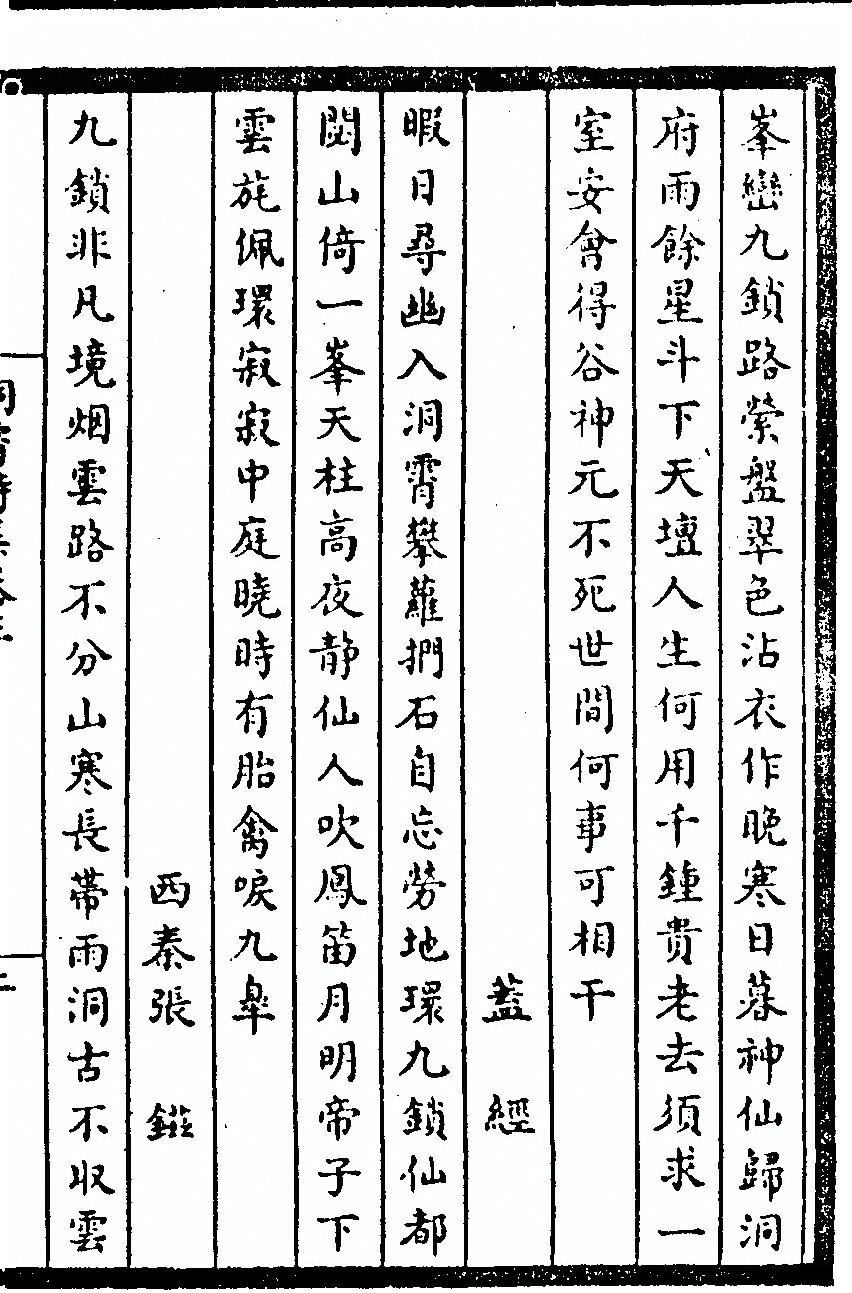 峯巒九鎖路縈盤翠色沾衣作晚寒日暮神仙歸洞
府雨餘星斗下天壇人生何用千鍾貴老去須求一
室安會得谷神元不死世間何事可相干
蓋經
暇日尋幽入洞霄攀蘿捫石自忘勞地環九鎖仙都
閟山倚一峯天柱高夜静仙人吹鳳笛月明帝子下
雲旄佩環寂寂中庭曉時有胎禽唳九臯
西秦張鎡
九鎖非凡境烟雲路不分山寒長帶雨洞古不収雲
洞霄詩集卷三